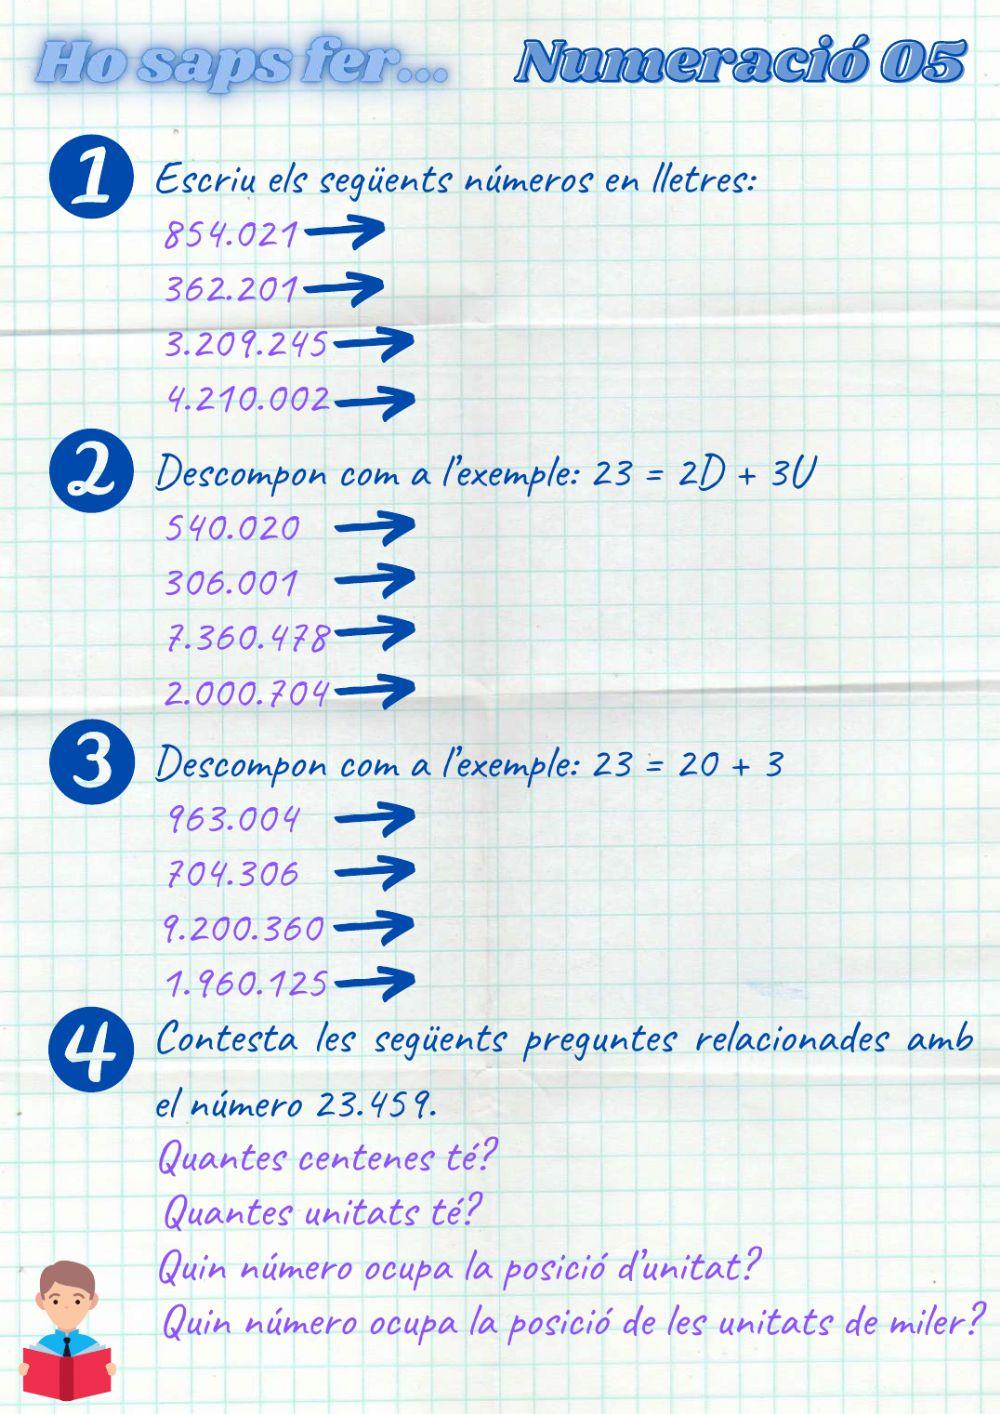 Ho saps fer... Numeració 05
1 Escriu els següents números en lletres:
854.021
362.201
3.209.245
4.210.002
2 Descompon com a l'exemple: 23 = 2D + 3U
540.020
306.001
7.360.478
2.000.704
3 Descompon com a l'exemple: 23 = 20 + 3
963.004
704.306
9.200.360
1.960.125
4 Contesta les següents preguntes relacionades amb
el número 23.459.
Quantes centenes té?
Quantes unitats té?
Quin número ocupa la posició d'unitat?
Quin número ocupa la posició de les unitats de miler?